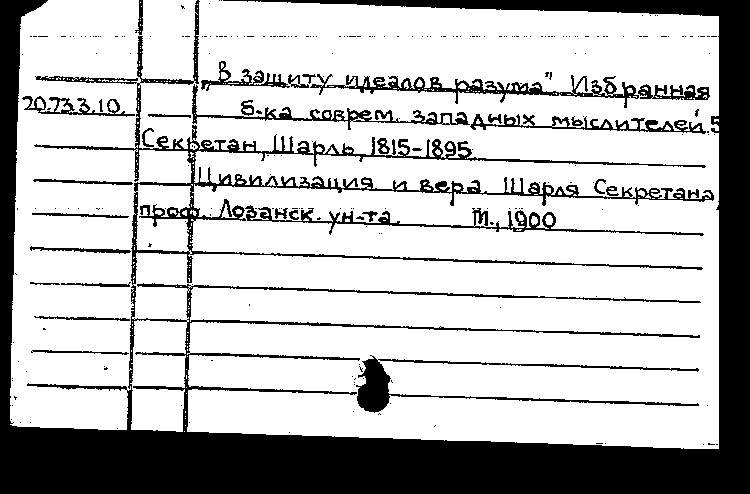 „В защиту идеалов разума" Избранная
20.733.10. б-ка соврем. западных мыслителей.5
Секретан, Шарль, 1815-1895
Цивилизация и вера. Шарля Секретана,
проф. Лозанск. ун-та. М., 1900